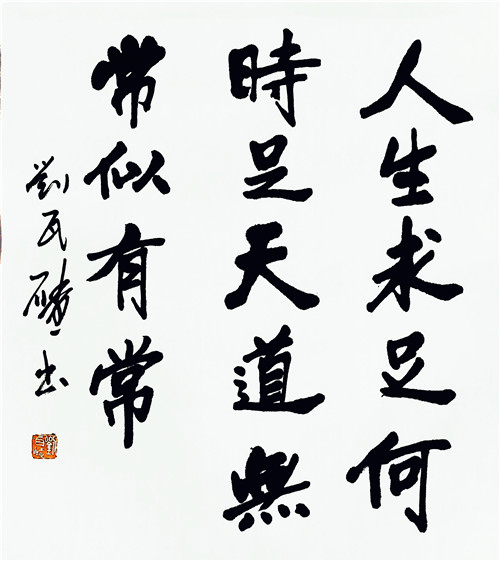 人生求足何
時足天道無
常似有常
劉瓦书